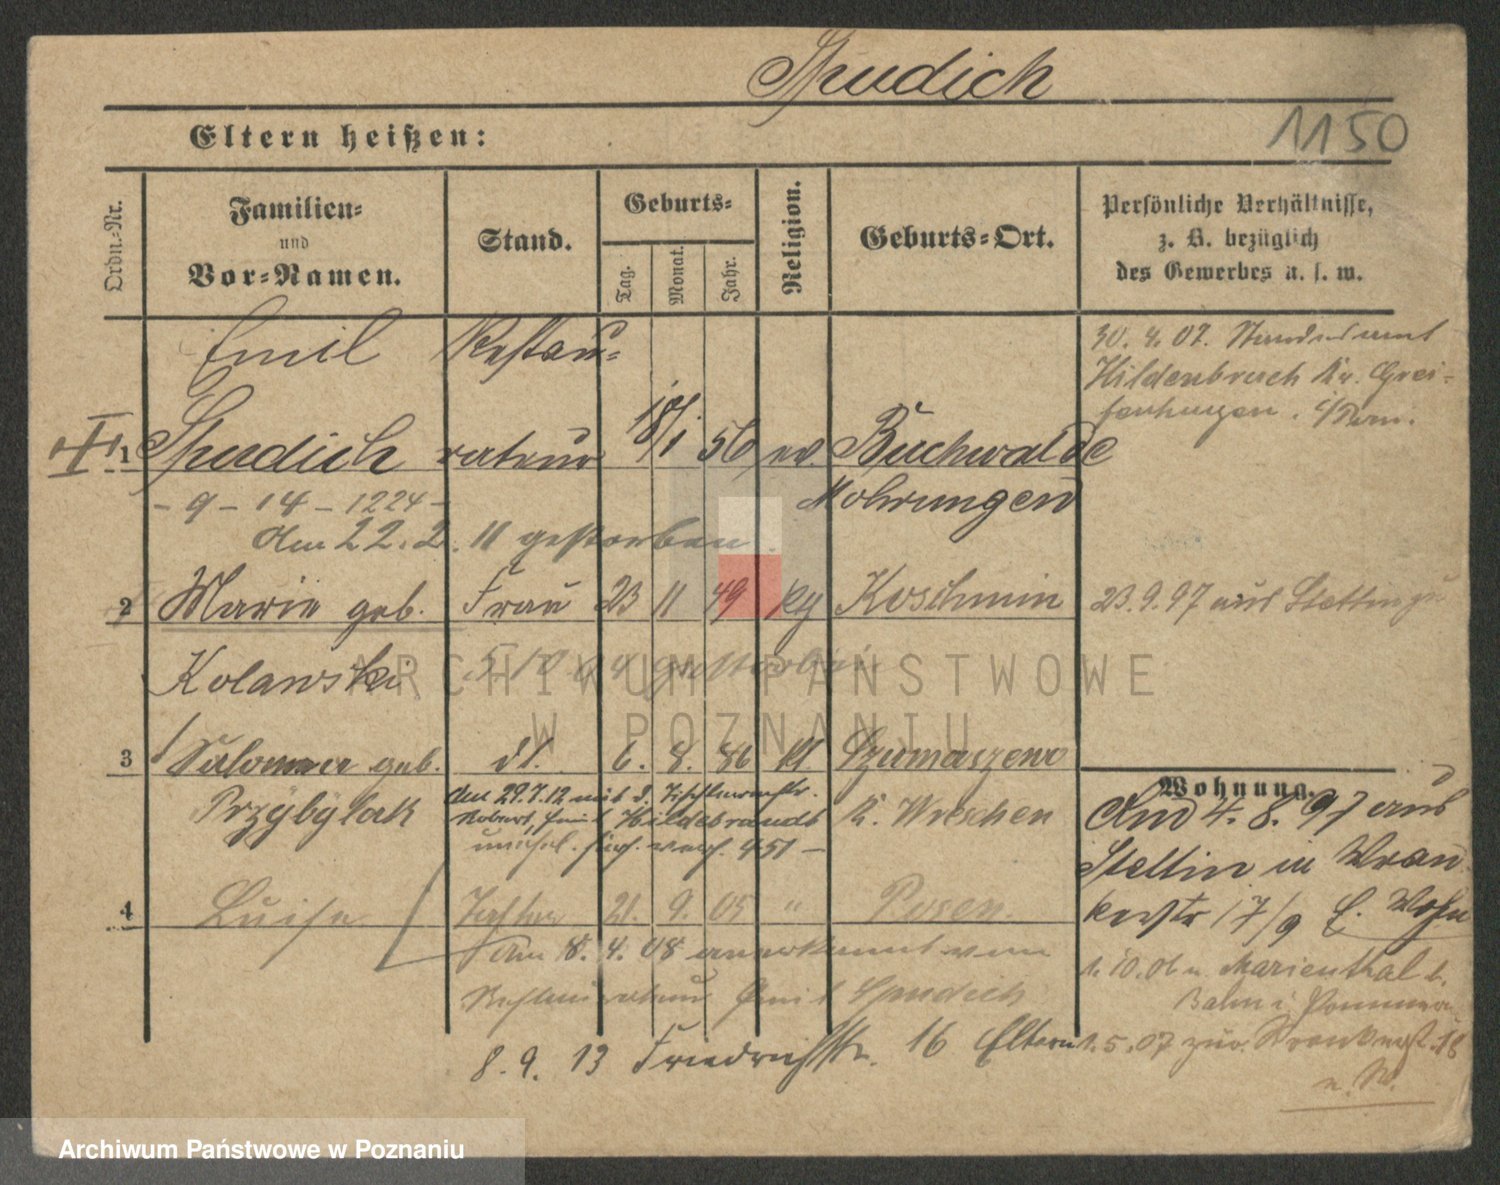 Spudich
1150
Eltern heißen:
Ordn.-Nr.
Familien-
und
Vor-Namen.
Stand.
Geburts-
Tag.
Monat.
Jahr.
Religion.
Geburts-Ort.
Persönliche Verhältnisse,
z. B. bezüglich
des Gewerbes u. s. w.
Emil Restau-
1 Spudich rateur 18/1 56 ev. Buchwalde
Mohrungen
30. 4. 07. Standesamt
Hildenbruch Kr. Grei-
fenhagen
- 9 - 14 - 1224 -
am 22. 2. 11 gestorben.
2 Marie geb. Frau 23 11 49 Koschmin
23. 9. 97 aus Stettin zu
Kolawski 5 10 04 gestorben
3 Salomea geb. 6. 8. 86 kt
Przybylak K. Wreschen
am 29.7.12 mit d.
Robert, Emil Hildebrandt
451 -
4 Luise Tochter 21. 9. 05 " Posen
Am 8. 4. 08 anerkannt vom
Restaurateur Emil Spudich
8. 9. 13 Friedrichstr. 16 Eltern
Wohnung.
4. 8. 97 aus
Stettin in
17/9
1. 10. 06 n. Marienthal b.
Bahn i. Pommern
1. 5. 07 zur. 18
n. W.
ARCHIWUM PAŃSTWOWE
W POZNANIU
Archiwum Państwowe w Poznaniu